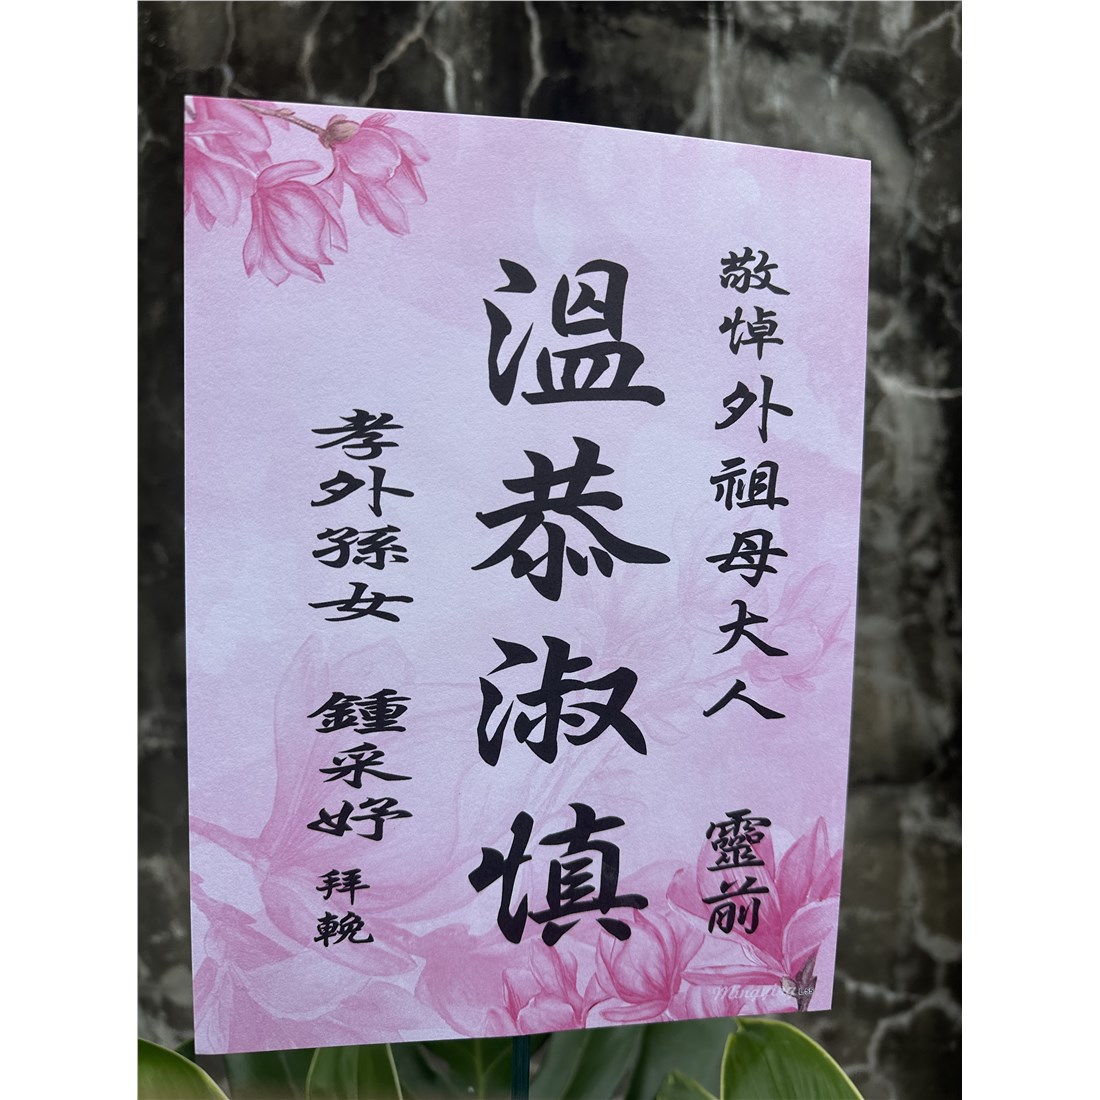 敬悼外祖母大人 靈前
溫恭淑慎
孝外孫女 鍾采妤 拜輓